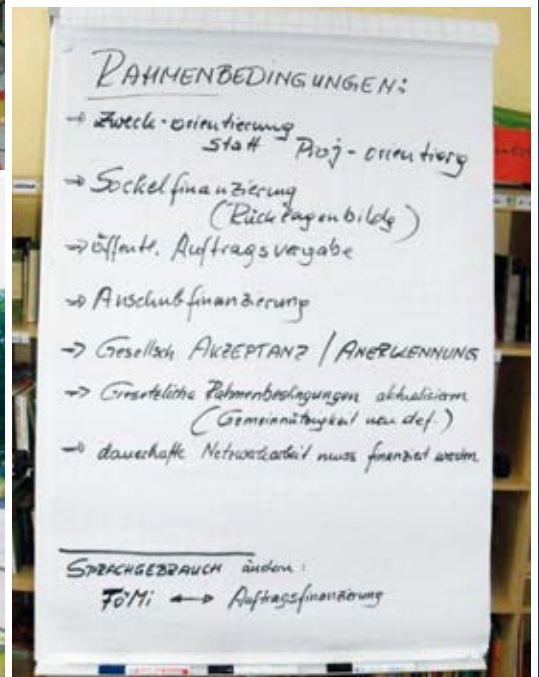 RAHMENBEDINGUNGEN:
→ Zweck-orientierung
statt Proj-orientierg
→ Sockelfinanzierung
(Rücklagenbildg)
→ öffentl. Auftragsvergabe
→ Anschubfinanzierung
→ Gesellsch AKZEPTANZ / ANERKENNUNG
→ Gesetzliche Rahmenbedingungen aktualisieren
(Gemeinnützigkeit neu def.)
→ dauerhafte Netzwerkarbeit muss finanziert werden
SPRACHGEBRAUCH ändern:
FöMi ↔ Auftragsfinanzierung